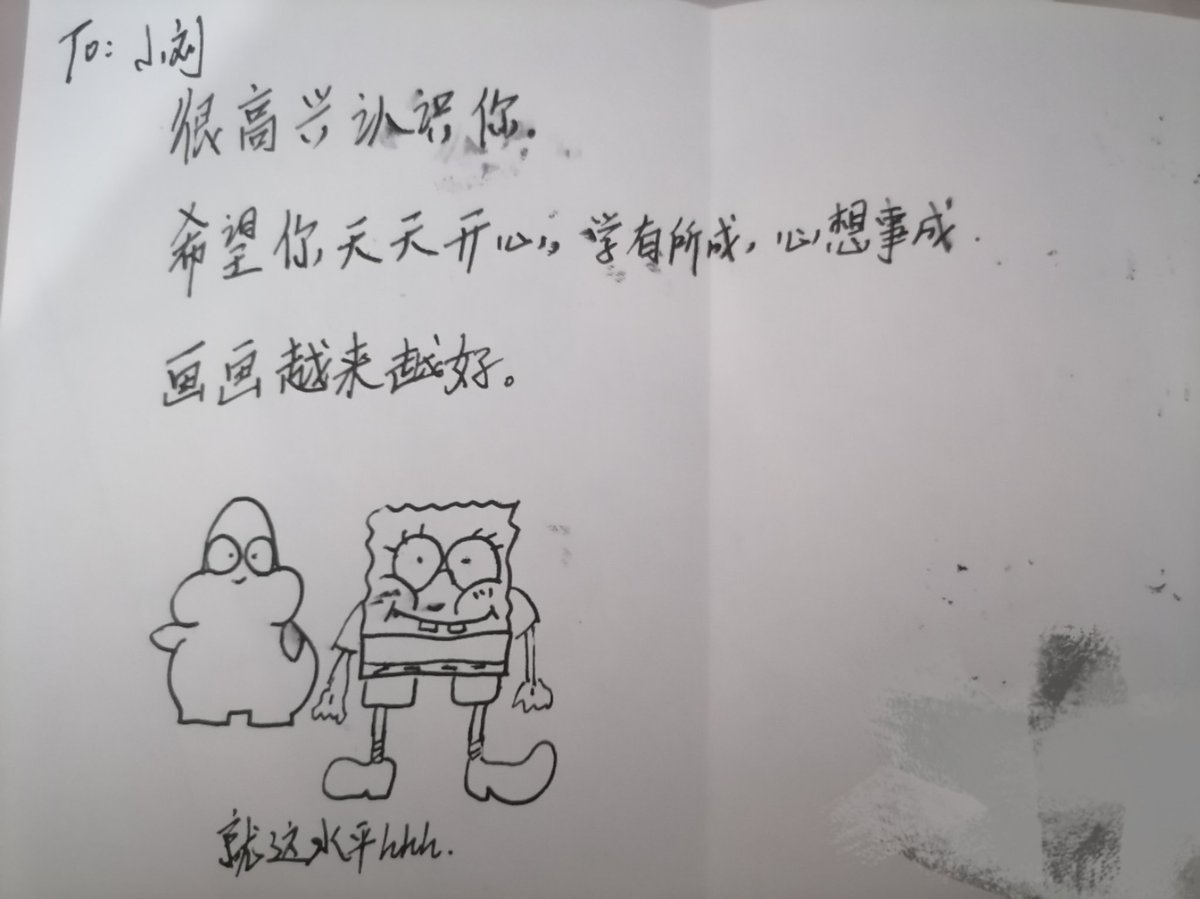 To: 小刘
很高兴认识你.
希望你天天开心,学有所成,心想事成.
画画越来越好。
就这水平hhh.